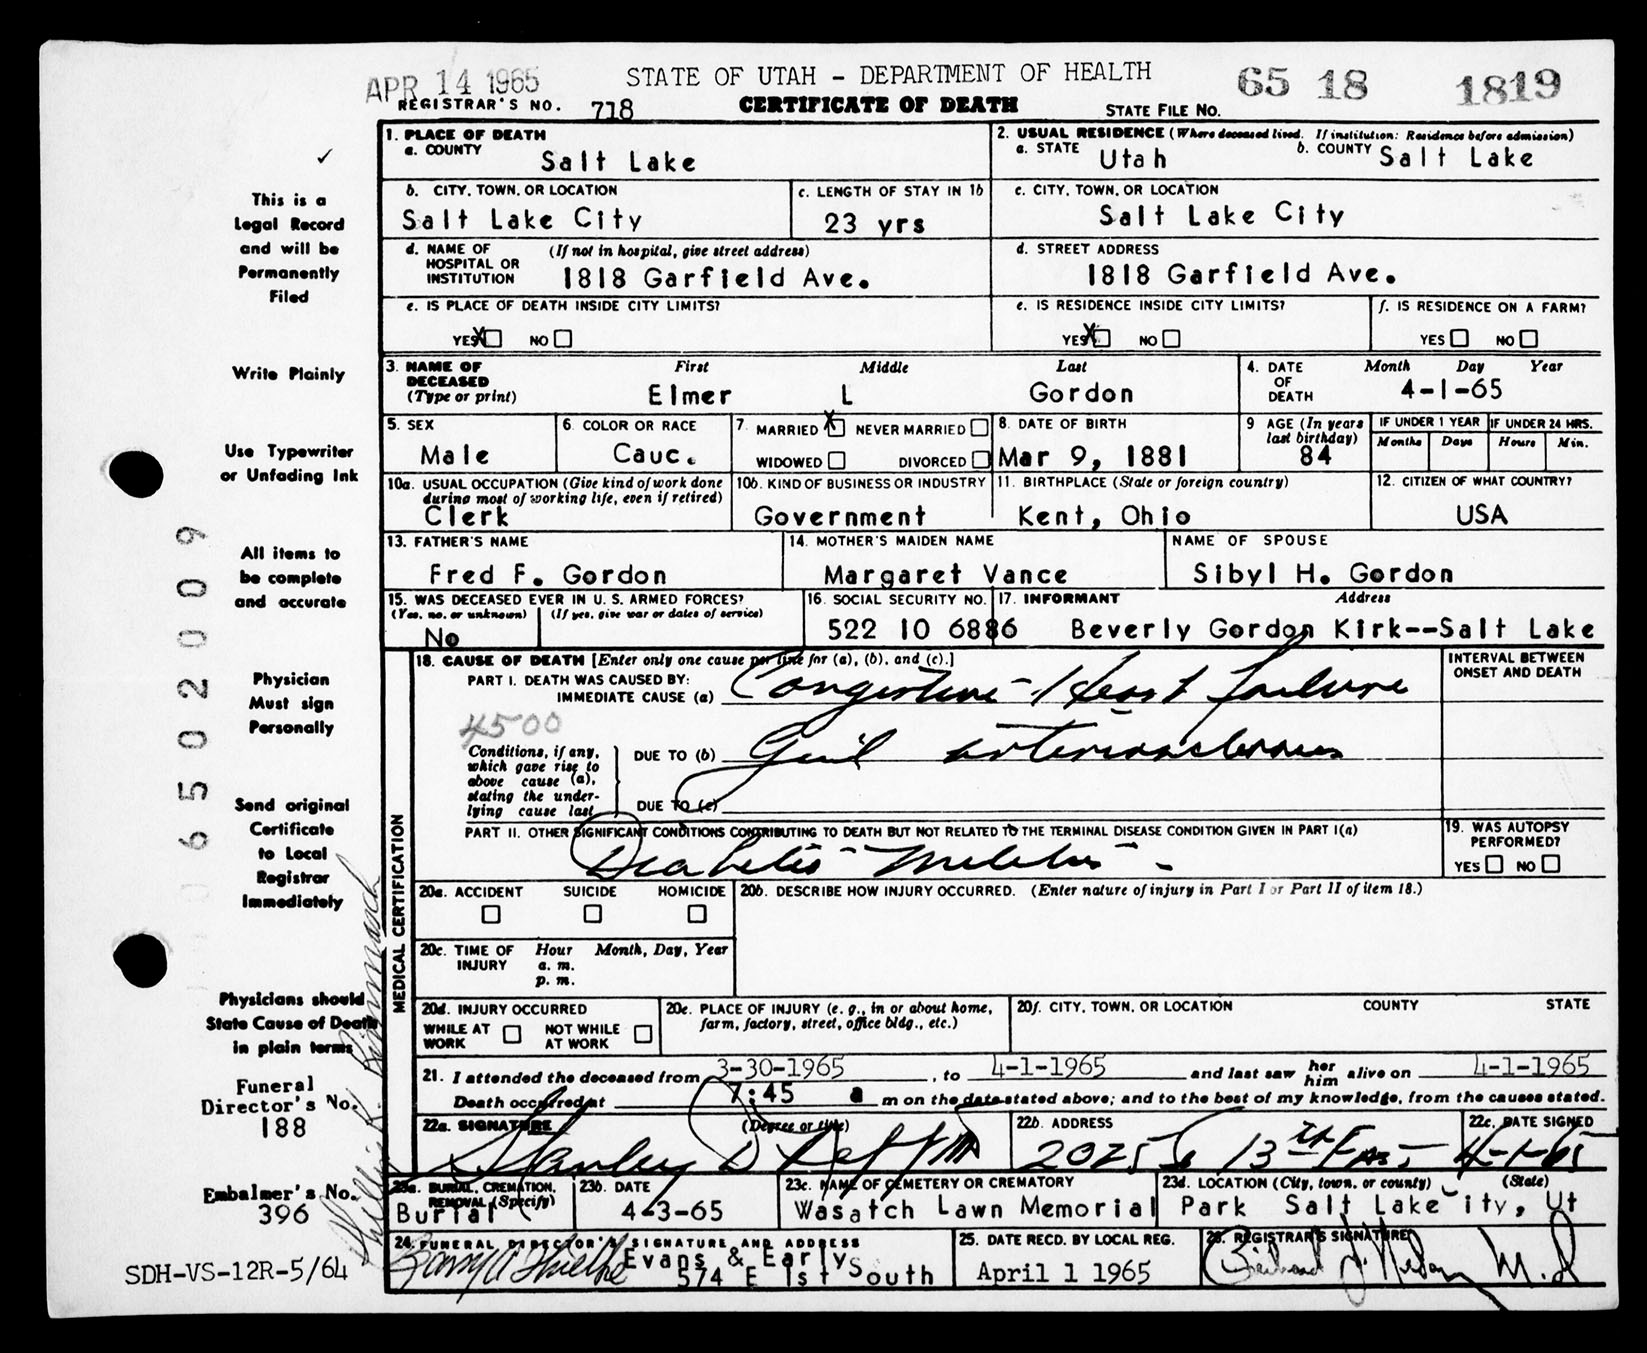 APR 14 1965
STATE OF UTAH - DEPARTMENT OF HEALTH
65 18 1819
REGISTRAR'S NO. 718
CERTIFICATE OF DEATH
STATE FILE NO.
1. PLACE OF DEATH
a. COUNTY Salt Lake
2. USUAL RESIDENCE (Where deceased lived. If institution: Residence before admission)
a. STATE Utah b. COUNTY Salt Lake
b. CITY, TOWN, OR LOCATION
Salt Lake City
c. LENGTH OF STAY IN 1b
23 yrs
c. CITY, TOWN, OR LOCATION
Salt Lake City
d. NAME OF HOSPITAL OR INSTITUTION (If not in hospital, give street address)
1818 Garfield Ave.
d. STREET ADDRESS
1818 Garfield Ave.
e. IS PLACE OF DEATH INSIDE CITY LIMITS?
YES X NO
e. IS RESIDENCE INSIDE CITY LIMITS?
YES X NO
f. IS RESIDENCE ON A FARM?
YES NO
3. NAME OF DECEASED (Type or print)
First Middle Last
Elmer L Gordon
4. DATE OF DEATH
Month Day Year
4-1-65
5. SEX
Male
6. COLOR OR RACE
Cauc.
7. MARRIED X NEVER MARRIED
WIDOWED DIVORCED
8. DATE OF BIRTH
Mar 9, 1881
9 AGE (In years last birthday)
84
IF UNDER 1 YEAR
Months Days
IF UNDER 24 HRS.
Hours Min.
10a. USUAL OCCUPATION (Give kind of work done during most of working life, even if retired)
Clerk
10b. KIND OF BUSINESS OR INDUSTRY
Government
11. BIRTHPLACE (State or foreign country)
Kent, Ohio
12. CITIZEN OF WHAT COUNTRY?
USA
13. FATHER'S NAME
Fred F. Gordon
14. MOTHER'S MAIDEN NAME
Margaret Vance
NAME OF SPOUSE
Sibyl H. Gordon
15. WAS DECEASED EVER IN U. S. ARMED FORCES?
(Yes, no, or unknown) (If yes, give war or dates of service)
No
16. SOCIAL SECURITY NO.
522 10 6886
17. INFORMANT Address
Beverly Gordon Kirk--Salt Lake
MEDICAL CERTIFICATION
18. CAUSE OF DEATH [Enter only one cause per line for (a), (b), and (c).]
PART I. DEATH WAS CAUSED BY:
IMMEDIATE CAUSE (a) Congestive Heart failure
INTERVAL BETWEEN ONSET AND DEATH
4500
Conditions, if any, which gave rise to above cause (a), stating the underlying cause last
DUE TO (b) Gen'l arteriosclerosis
DUE TO (c)
PART II. OTHER SIGNIFICANT CONDITIONS CONTRIBUTING TO DEATH BUT NOT RELATED TO THE TERMINAL DISEASE CONDITION GIVEN IN PART I(a)
Diabetes Mellitus -
19. WAS AUTOPSY PERFORMED?
YES NO
20a. ACCIDENT SUICIDE HOMICIDE
20b. DESCRIBE HOW INJURY OCCURRED. (Enter nature of injury in Part I or Part II of item 18.)
20c. TIME OF INJURY
Hour Month, Day, Year
a. m.
p. m.
20d. INJURY OCCURRED
WHILE AT WORK NOT WHILE AT WORK
20e. PLACE OF INJURY (e. g., in or about home, farm, factory, street, office bldg., etc.)
20f. CITY, TOWN, OR LOCATION COUNTY STATE
21. I attended the deceased from 3-30-1965, to 4-1-1965 and last saw her him alive on 4-1-1965
Death occurred at 7:45 a m on the date stated above; and to the best of my knowledge, from the causes stated.
22a. SIGNATURE (Degree or title)
Stanley D
22b. ADDRESS
2025 So 13th East
22c. DATE SIGNED
4-1-65
23a. BURIAL, CREMATION, REMOVAL (Specify)
Burial
23b. DATE
4-3-65
23c. NAME OF CEMETERY OR CREMATORY
Wasatch Lawn Memorial Park
23d. LOCATION (City, town, or county) (State)
Salt Lake City, Ut
24. FUNERAL DIRECTOR'S SIGNATURE AND ADDRESS
Evans & Early
574 E 1st South
25. DATE RECD. BY LOCAL REG.
April 1 1965
26. REGISTRAR'S SIGNATURE
M.D
✓
This is a
Legal Record
and will be
Permanently
Filed
Write Plainly
Use Typewriter
or Unfading Ink
All items to
be complete
and accurate
Physician
Must sign
Personally
Send original
Certificate
to Local
Registrar
Immediately
Physicians should
State Cause of Death
in plain terms
Funeral
Director's No.
188
Embalmer's No.
396
SDH-VS-12R-5/64
06502009